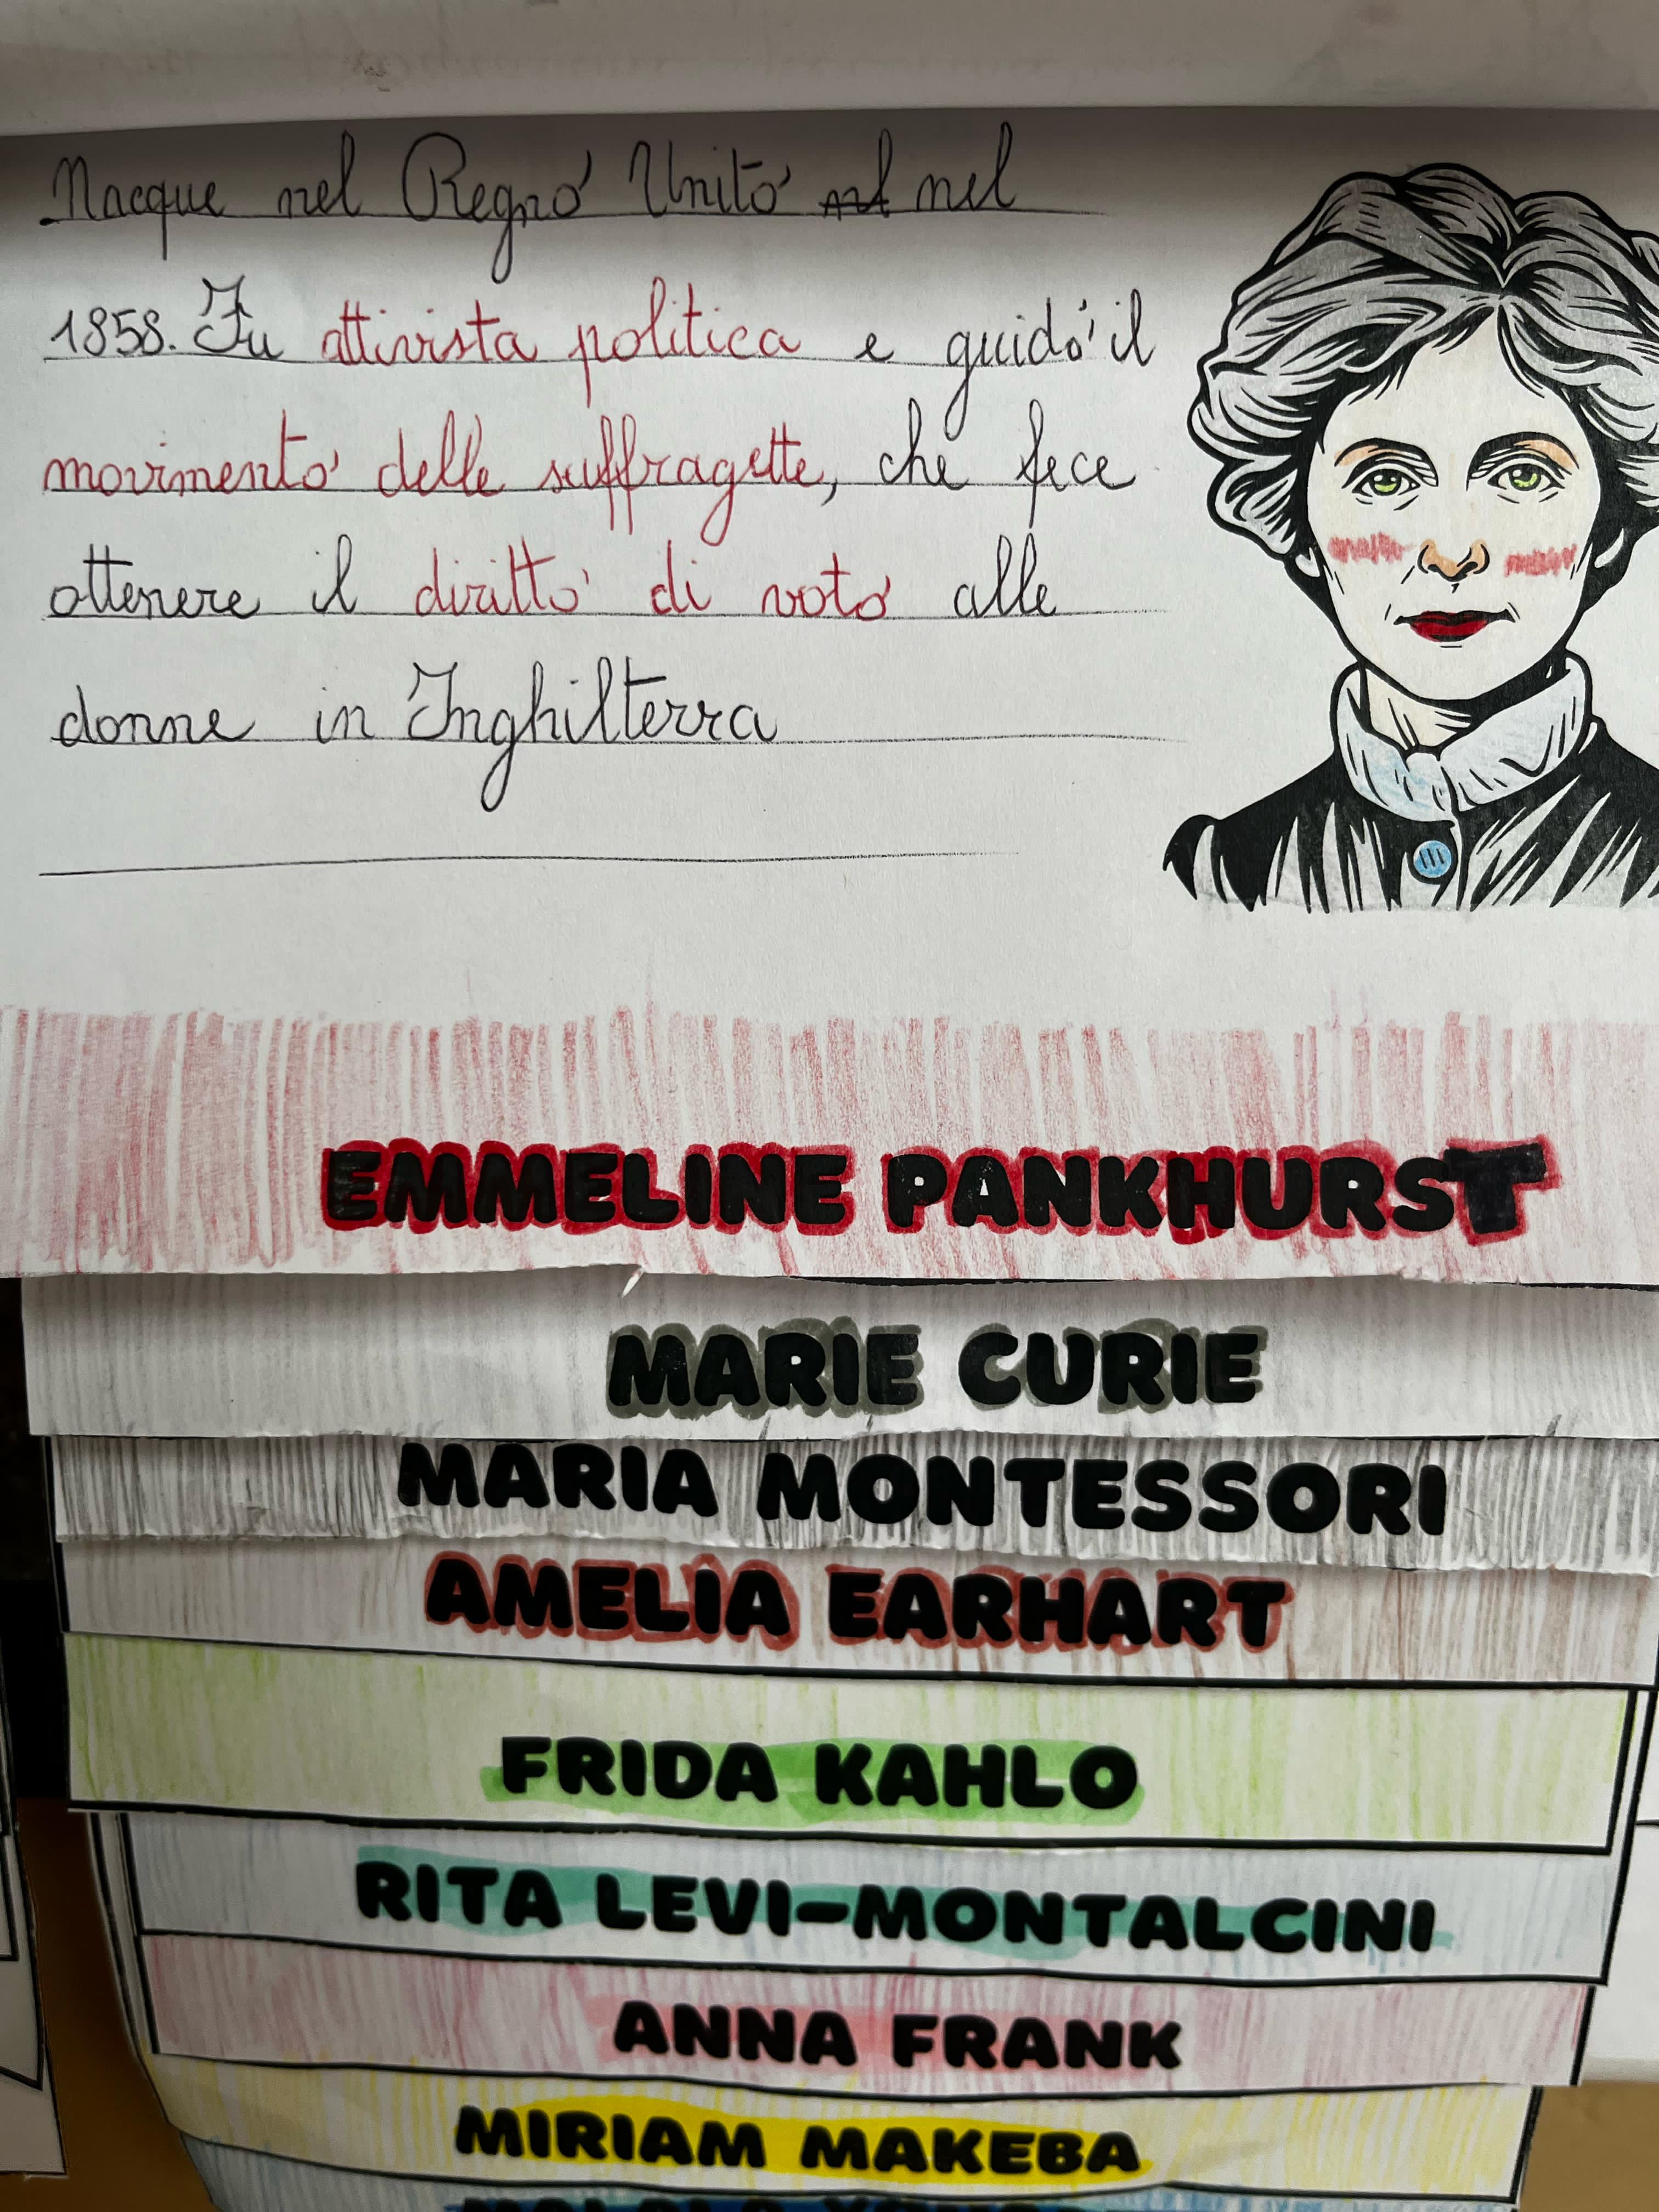 Nacque nel Regno Unito nel
1858. Fu attivista politica e guidò il
movimento delle suffragette, che fece
ottenere il diritto di voto alle
donne in Inghilterra
EMMELINE PANKHURST
MARIE CURIE
MARIA MONTESSORI
AMELIA EARHART
FRIDA KAHLO
RITA LEVI-MONTALCINI
ANNA FRANK
MIRIAM MAKEBA